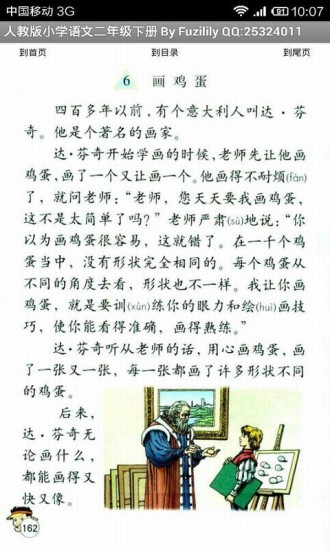 中国移动 3G 10:07
人教版小学语文二年级下册 By Fuzilily QQ:25324011
到首页 到目录 到尾页
6 画鸡蛋
四百多年以前,有个意大利人叫达·芬
奇。他是个著名的画家。
达·芬奇开始学画的时候,老师先让他画
鸡蛋,画了一个又让画一个。他画得不耐烦(fán)
了,就问老师:“老师,您天天要我画鸡蛋,
这不是太简单了吗?”老师严肃(sù)地说:“你
以为画鸡蛋很容易,这就错了。在一千个鸡
蛋当中,没有形状完全相同的。每个鸡蛋从
不同的角度去看,形状也不一样。我让你画
鸡蛋,就是要训(xùn)练你的眼力和绘(huì)画技
巧,使你能看得准确,画得熟练。”
达·芬奇听从老师的话,用心画鸡蛋,画
了一张又一张,每一张都画了许多形状不同
的鸡蛋。
后来,
达·芬奇无
论画什么,
都能画得又
快又像。
162